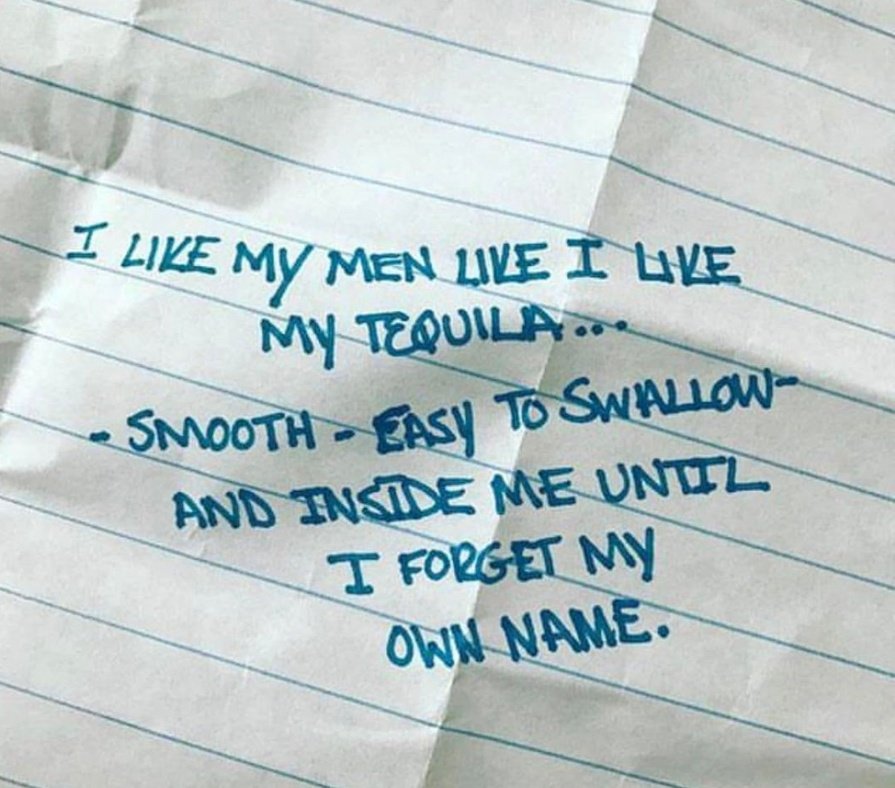 I LIKE MY MEN LIKE I LIKE
MY TEQUILA...
- SMOOTH - EASY TO SWALLOW-
AND INSIDE ME UNTIL
I FORGET MY
OWN NAME.